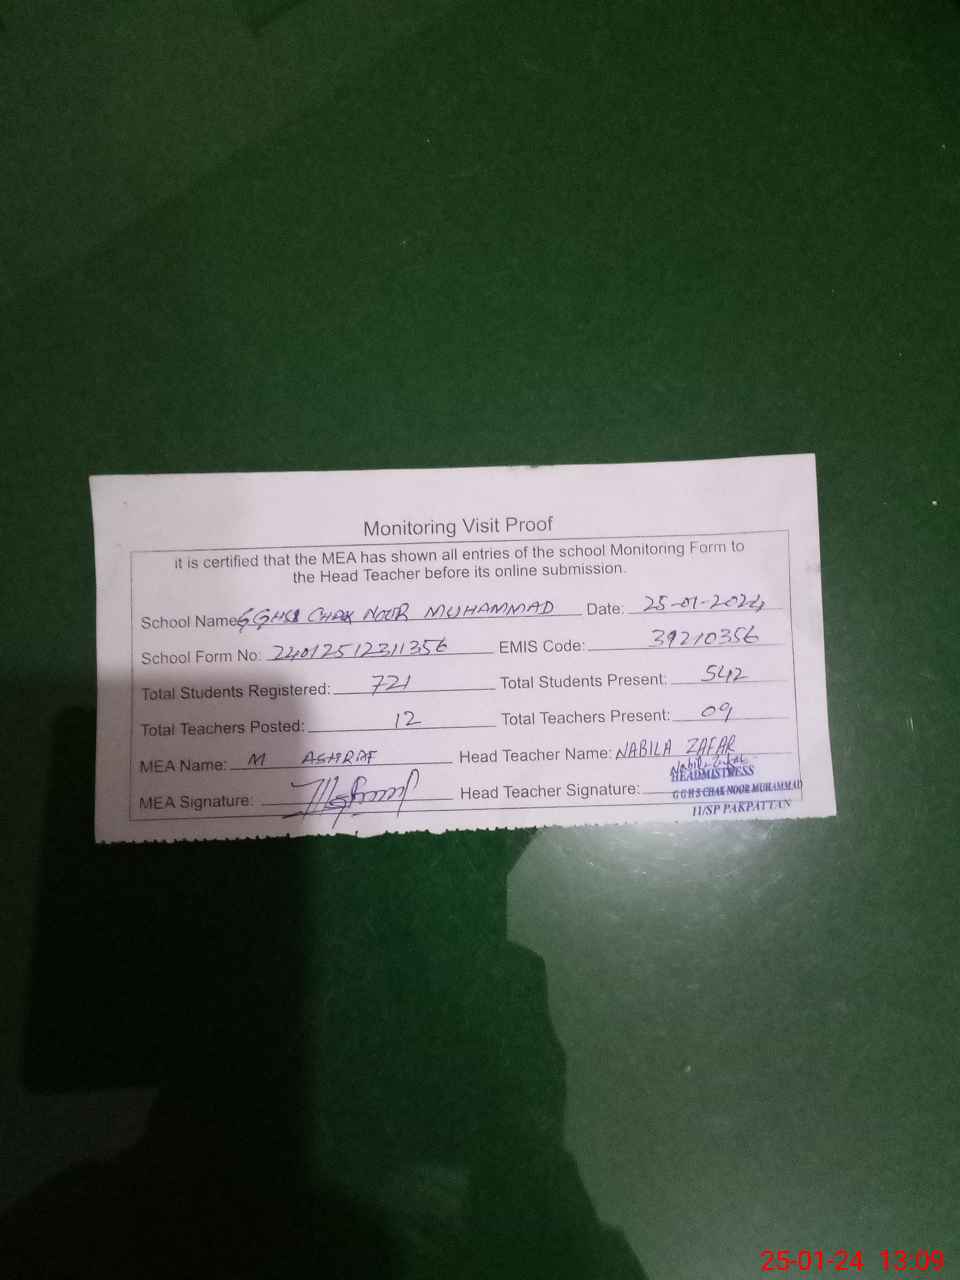 Monitoring Visit Proof
it is certified that the MEA has shown all entries of the school Monitoring Form to
the Head Teacher before its online submission.
School Name GGHS CHAK NOOR MUHAMMAD Date: 25-01-2024
School Form No: 24012512311356 EMIS Code: 39210356
Total Students Registered: 721 Total Students Present: 542
Total Teachers Posted: 12 Total Teachers Present: 09
MEA Name: M ASHRAF Head Teacher Name: NABILA ZAFAR
Nabila Zafar
HEADMISTRESS
MEA Signature: Head Teacher Signature: G G H S CHAK NOOR MUHAMMAD
11/SP PAKPATTAN
25-01-24 13:09